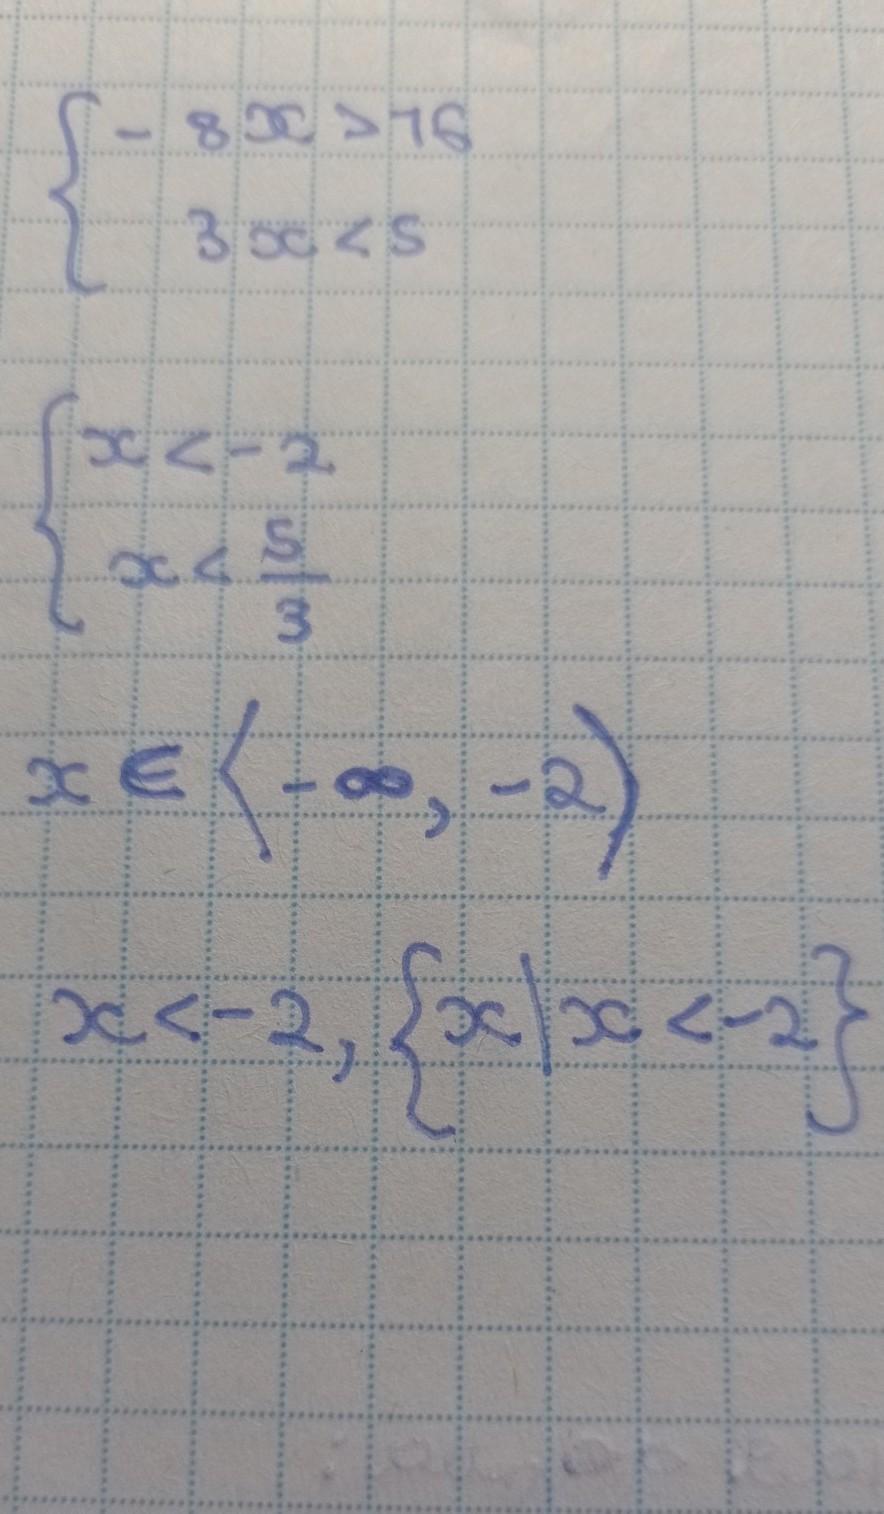 { - 8x > 16
3x < 5
{ x < - 2
x < 5/3
x ∈ ⟨ - ∞, - 2)
x < - 2, {x | x < - 2}